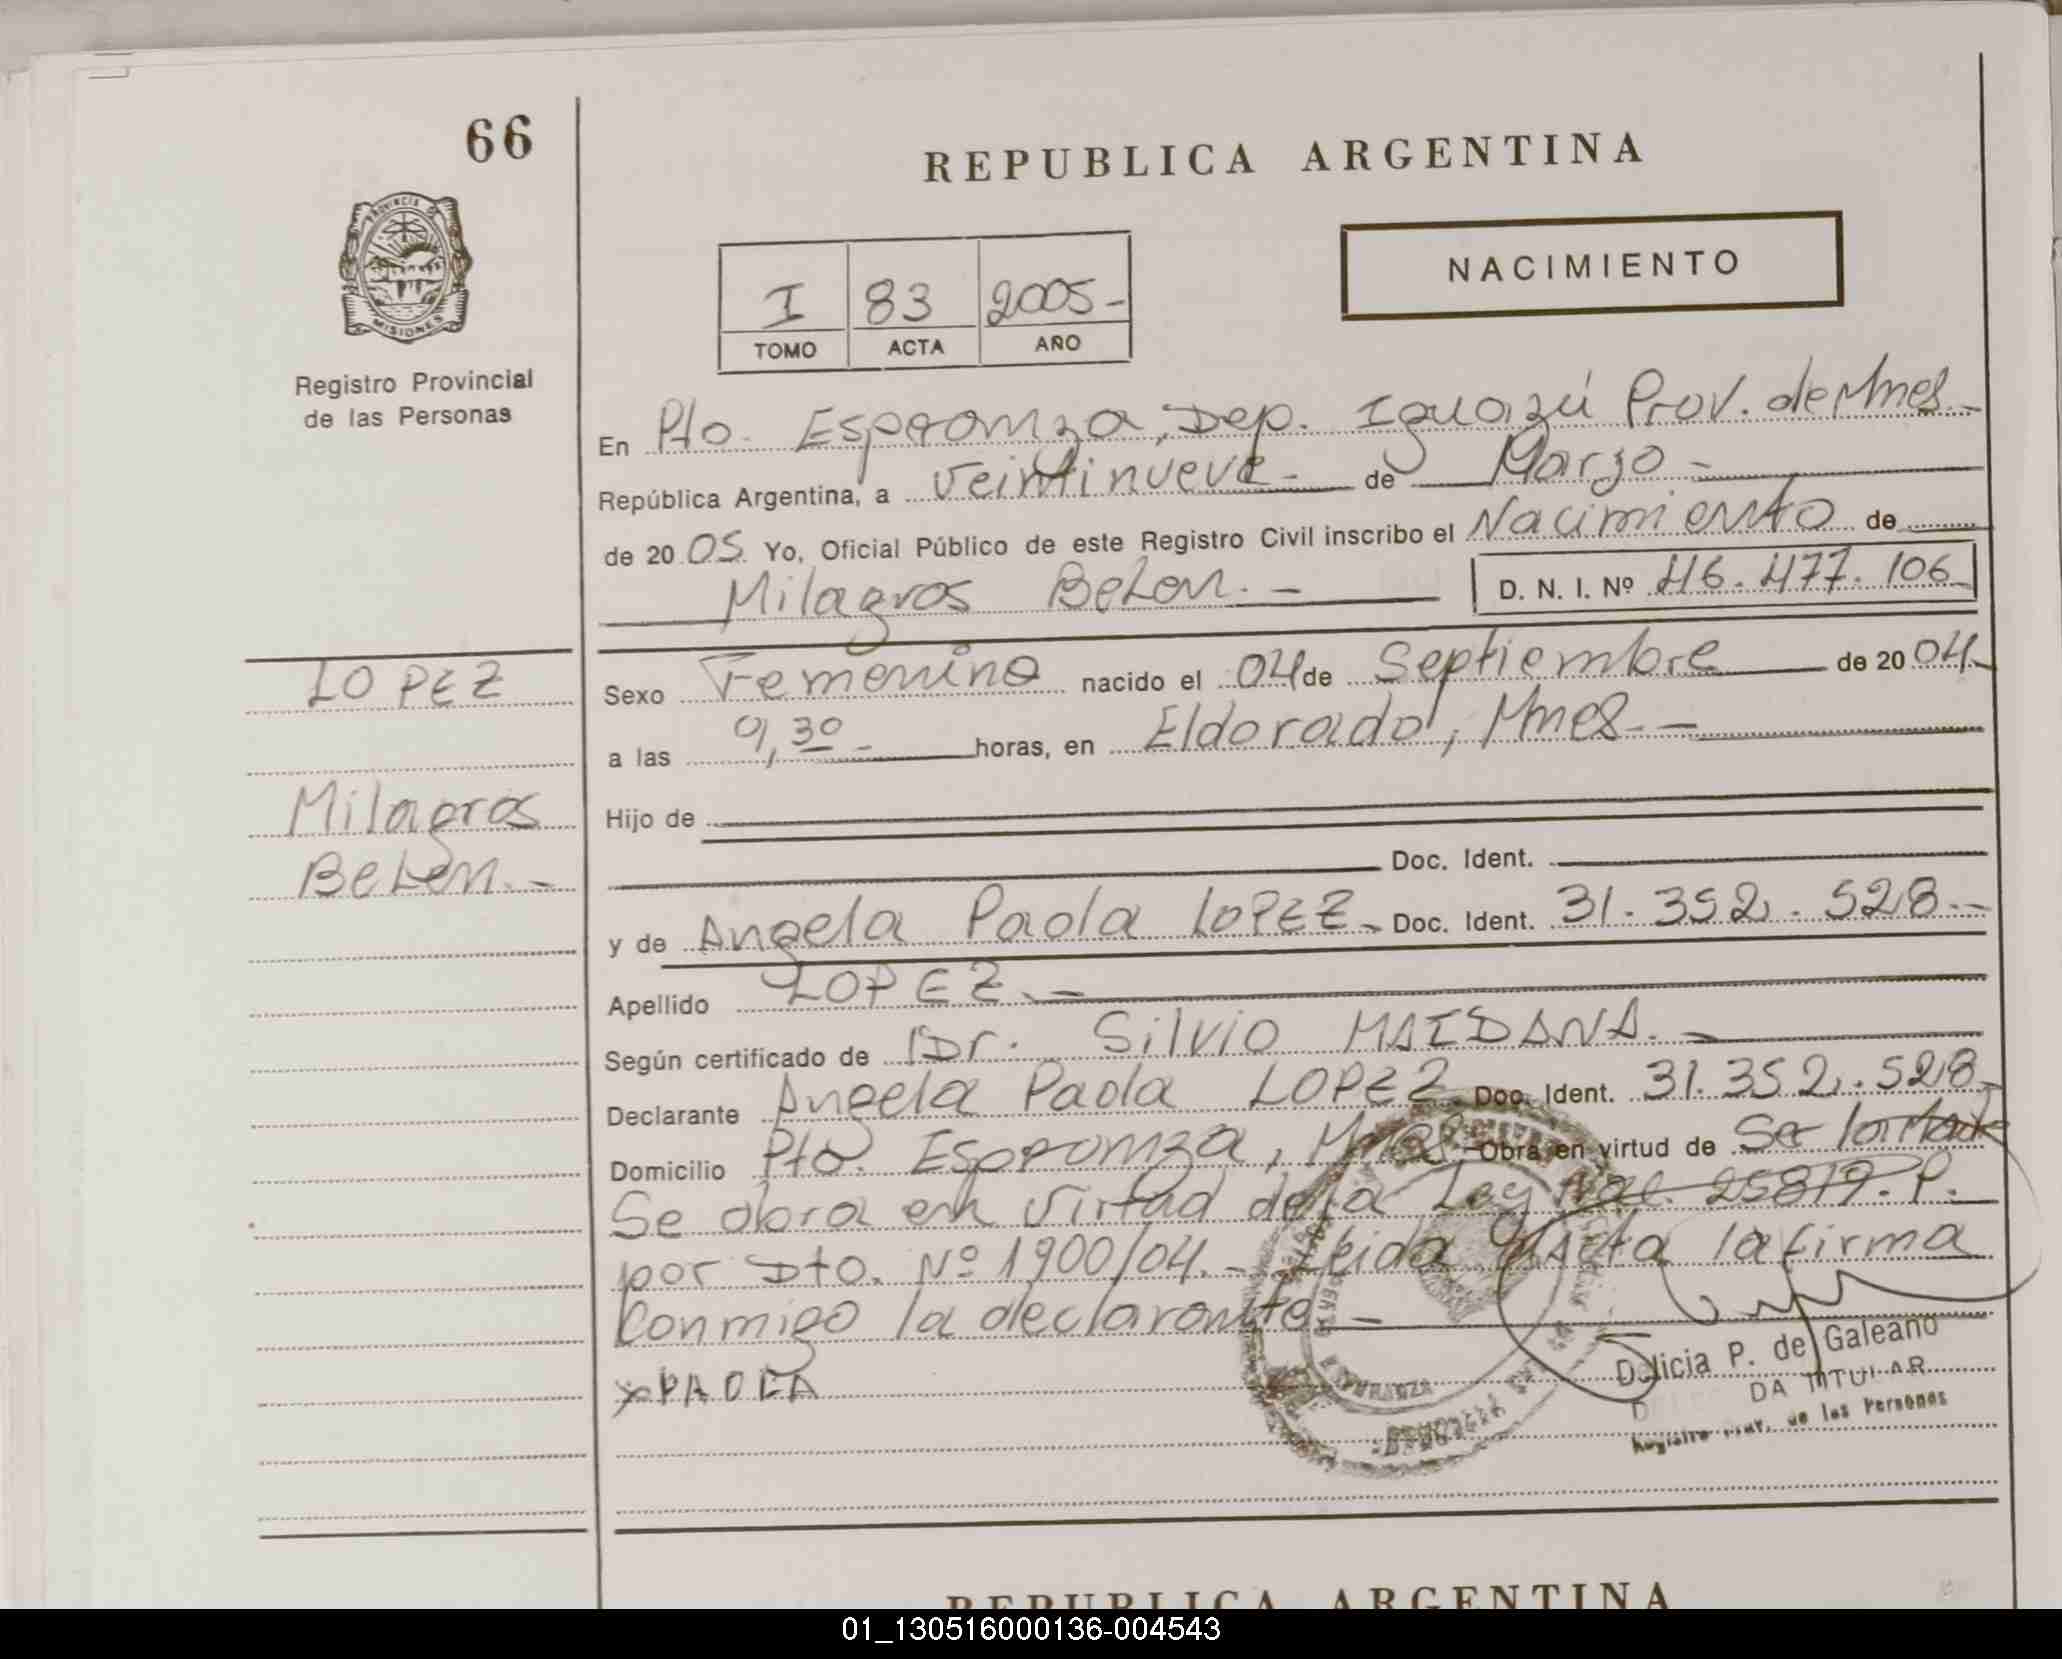 66
REPUBLICA ARGENTINA
PROVINCIA DE
MISIONES
NACIMIENTO
I 83 2005-
TOMO ACTA AÑO
Registro Provincial
de las Personas
En Pto. Esperanza, Dep. Iguazú Prov. de Mnes.-
República Argentina, a veintinueve- de Marzo -
de 20 05. Yo, Oficial Público de este Registro Civil inscribo el Nacimiento de
Milagros BeLen.- D. N. I. Nº 46.477.106-
LOPEZ
Sexo Femenino nacido el 04 de Septiembre de 20 04.-
a las 9,30- horas, en Eldorado, Mnes.-
Milagros
BeLen.-
Hijo de
Doc. Ident.
y de Angela Paola LOPEZ- Doc. Ident. 31.352.528.-
Apellido LOPEZ.-
Según certificado de Dr. Silvio MAIDANA.-
Declarante Angela Paola LOPEZ Doc. Ident. 31.352.528-
Domicilio Pto. Esperanza, Mnes- Obra en virtud de Se
Se obra en virtud de la Ley Nac. 25819. P.
por Dto. Nº 1900/04.- Leida Acta la firma
Conmigo la declarante.-
x PAOLA
Delicia P. de Galeano
DA TITULAR
Registro Prov. de las Personas
REPUBLICA ARGENTINA
01_130516000136-004543